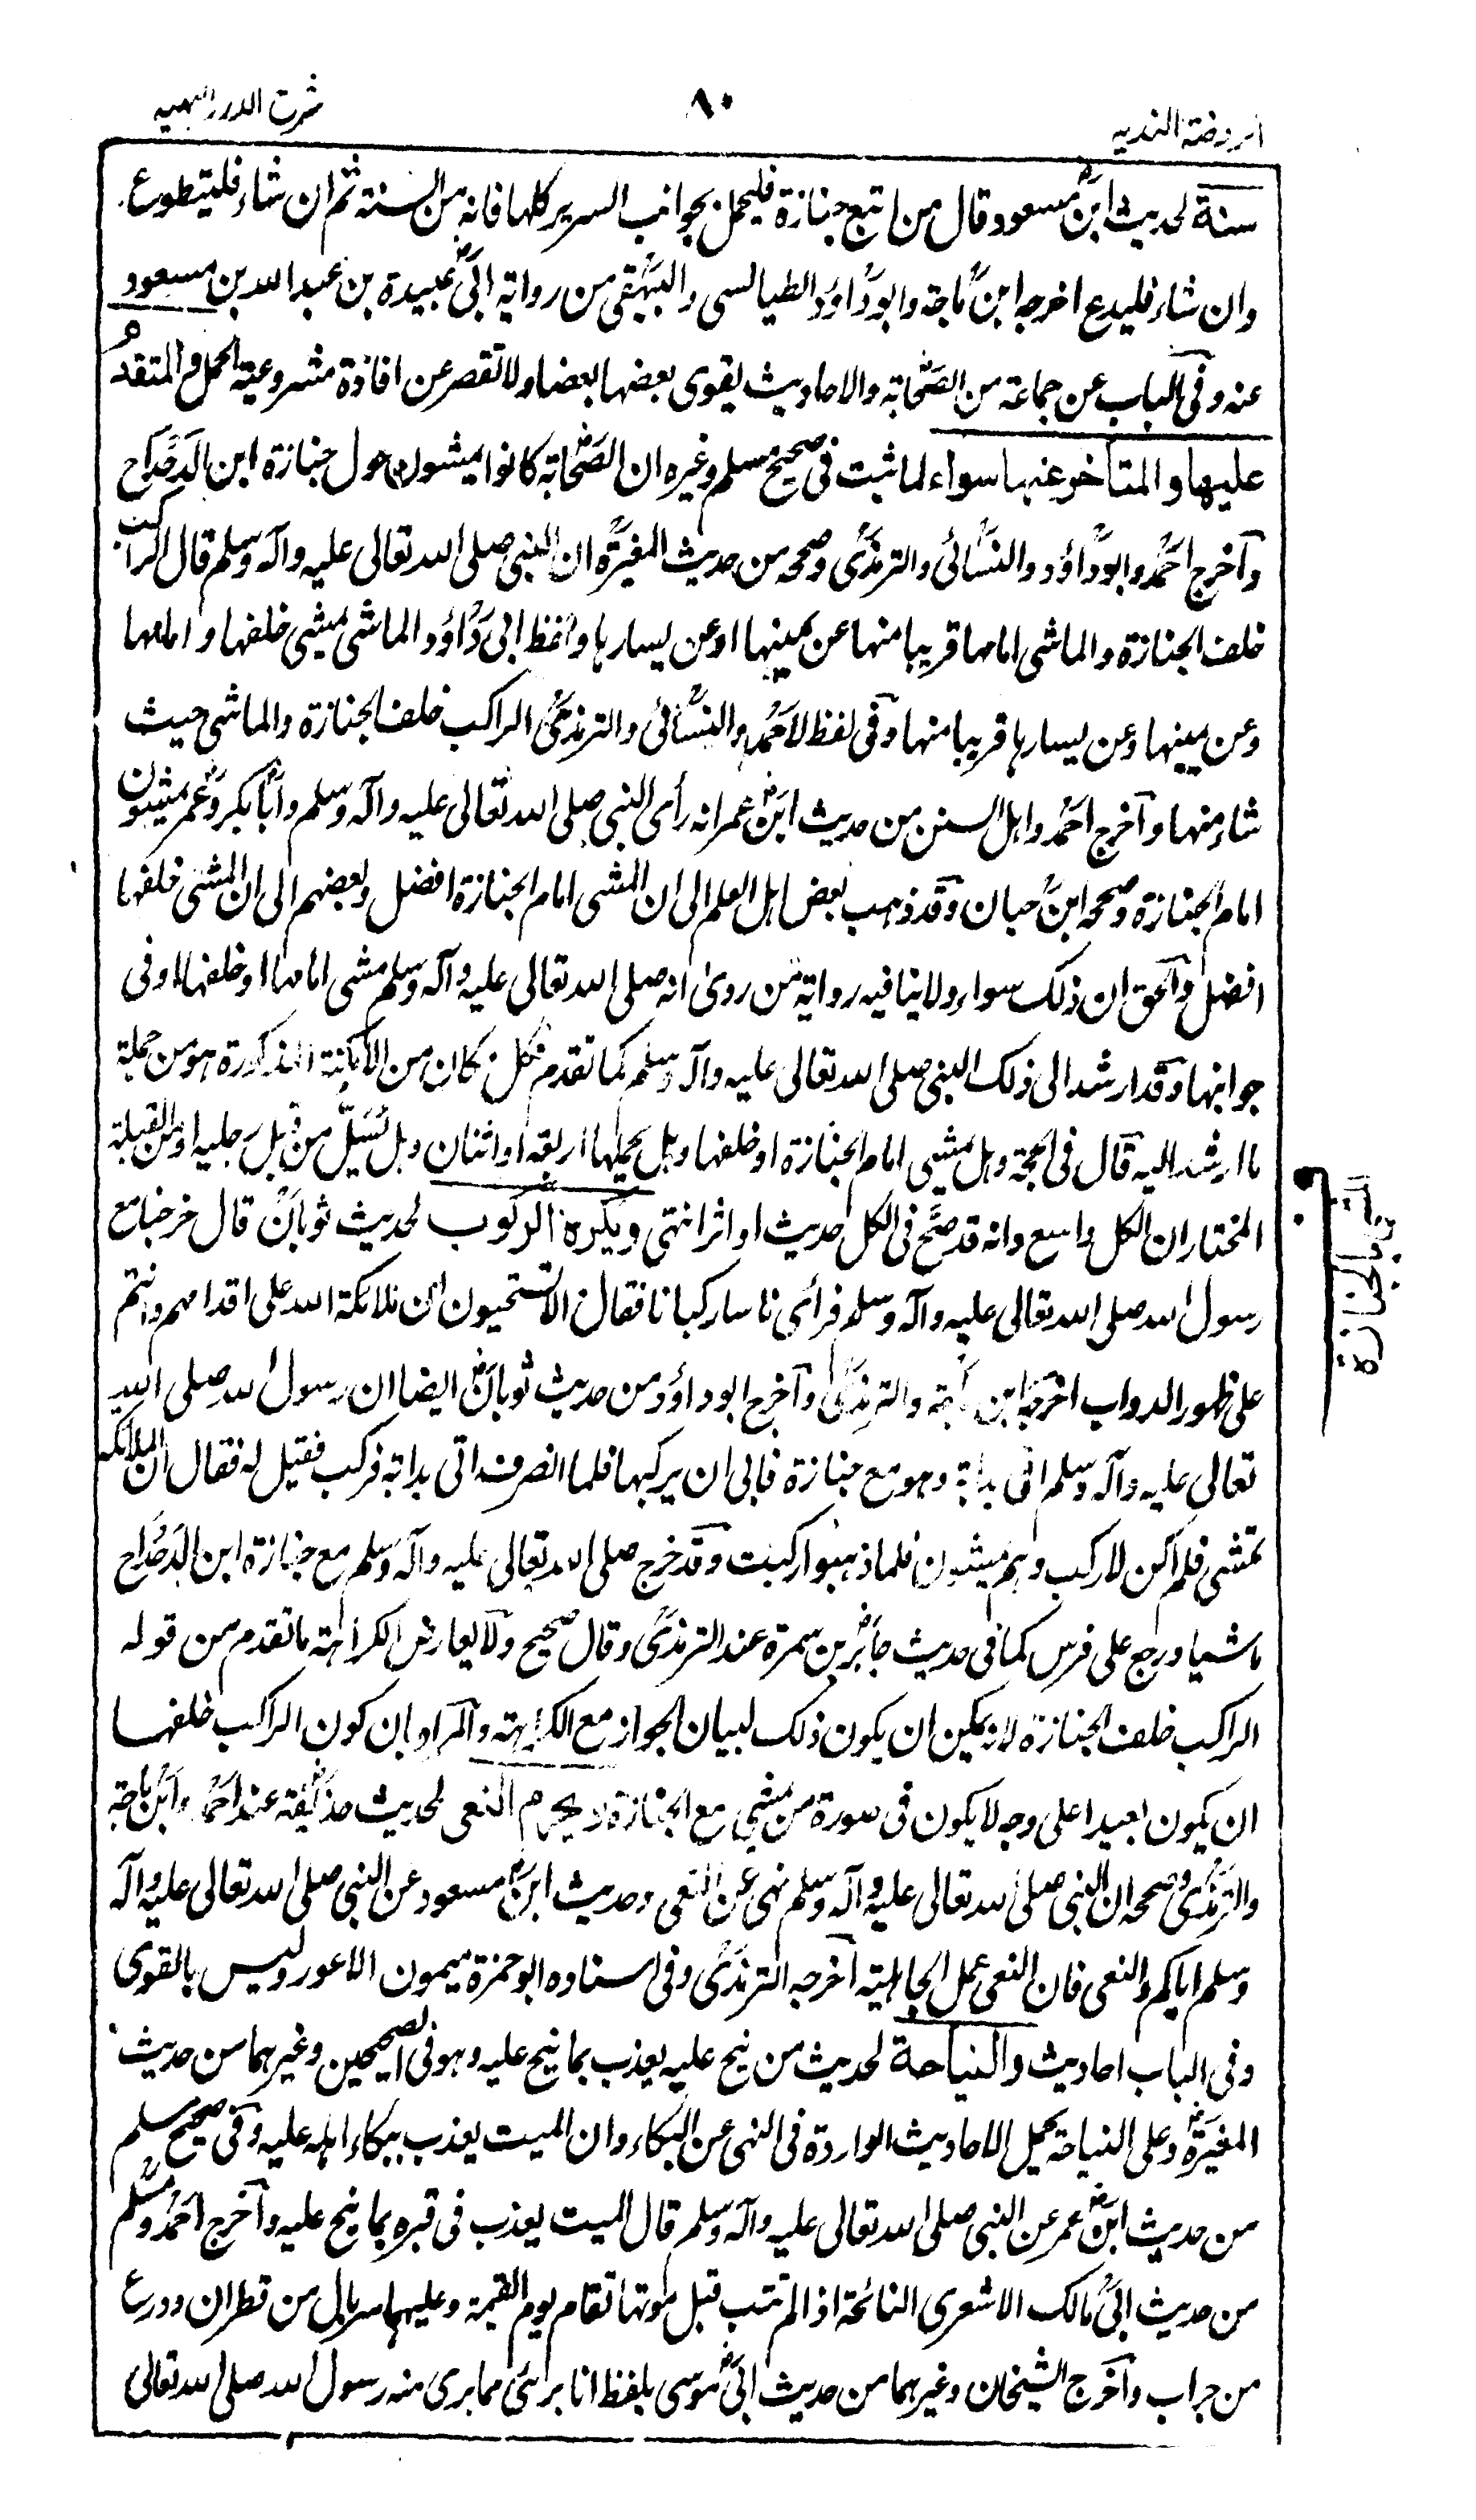 الروضة الندیه
٨٠
شرح الدرر البهیه
سنة لحدیث ابن مسعود قال من اتبع جنازة فلیحمل بجوانب السریر کلها فانه من السنة ثم ان شاء فلیتطوع
وان شاء فلیدع اخرجه ابن ماجة وابوداؤد الطیالسی والبیهقی من روایة ابی عبیدة بن عبد الله بن مسعود
عنه وفی الباب عن جماعة من الصحابة والاحادیث یقوی بعضها بعضا ولا تقصر عن افادة مشروعیة الحمل والمتقدم
علیها والمتأخر عنها سواء لما ثبت فی صحیح مسلم وغیره ان الصحابة کانوا یمشون حول جنازة ابن الدحداح
وآخرج احمد وابوداؤد والنسائی والترمذی وصححه من حدیث المغیرة ان النبی صلی الله تعالی علیه وآله وسلم قال الراکب
خلف الجنازة والماشی امامها قریبا منها عن یمینها او عن یسارها ولفظ ابی داؤد الماشی یمشی خلفها وامامها
وعن یمینها وعن یسارها قریبا منها وفی لفظ لاحمد والنسائی والترمذی الراکب خلف الجنازة والماشی حیث
شاء منها وآخرج احمد واهل السنن من حدیث ابن عمر انه رأی النبی صلی الله تعالی علیه وآله وسلم وابا بکر وعمر یمشون
امام الجنازة وصححه ابن حبان وقد ذهب بعض اهل العلم الی ان المشی امام الجنازة افضل وبعضهم الی ان المشی خلفها
افضل والحق ان ذلک سواء ولا ینافیه روایة من روی انه صلی الله تعالی علیه وآله وسلم مشی امامها او خلفها او فی
جوانبها وقد ارشد الی ذلک النبی صلی الله تعالی علیه وآله وسلم کما تقدم فکل مکان من الامکنة المذکورة هو من جملة
ما ارشد الیه قال فی الحجة وهل یمشی امام الجنازة او خلفها وهل یحملها اربعة او اثنان وهل یسل من قبل رجلیه او من القبلة
المختار ان الکل واسع وانه قد صح فی الکل حدیث او اثر انتهی ویکره الرکوب لحدیث ثوبان قال خرجنا مع
رسول الله صلی الله تعالی علیه وآله وسلم فرأی ناسا رکبانا فقال الا تستحیون ان ملائکة الله علی اقدامهم وانتم
علی ظهور الدواب اخرجه ابن ماجة والترمذی وآخرج ابوداؤد من حدیث ثوبان ایضا ان رسول الله صلی الله
تعالی علیه وآله وسلم اتی بدابة وهو مع جنازة فابی ان یرکبها فلما انصرف اتی بدابة فرکب فقیل له فقال ان الملائکة
تمشی فلم اکن لارکب وهم یمشون فلما ذهبوا رکبت وقد خرج صلی الله تعالی علیه وآله وسلم مع جنازة ابن الدحداح
ماشیا ورجع علی فرس کما فی حدیث جابر بن سمرة عند الترمذی وقال صحیح ولا یعارض الکراهة ما تقدم من قوله
الراکب خلف الجنازة لانه یمکن ان یکون ذلک لبیان الجواز مع الکراهة والمراد بان کون الراکب خلفها
ان یکون بعیدا علی وجه لا یکون فی صورة من یمشی مع الجنازة ویحرم النعی لحدیث حذیفة عند احمد وابن ماجة
والترمذی وصححه ان النبی صلی الله تعالی علیه وآله وسلم نهی عن النعی وحدیث ابن مسعود عن النبی صلی الله تعالی علیه وآله
وسلم ایاکم والنعی فان النعی عمل الجاهلیة آخرجه الترمذی وفی اسناده ابوحمزة میمون الاعور ولیس بالقوی
وفی الباب احادیث والنیاحة لحدیث من نیح علیه یعذب بما نیح علیه وهو فی الصحیحین وغیرهما من حدیث
المغیرة وعلی النیاحة یحمل الاحادیث الواردة فی النهی عن البکاء وان المیت یعذب ببکاء اهله علیه وفی صحیح مسلم
من حدیث ابن عمر عن النبی صلی الله تعالی علیه وآله وسلم قال المیت یعذب فی قبره بما نیح علیه وآخرج احمد ومسلم
من حدیث ابی مالک الاشعری النائحة اذا لم تتب قبل موتها تقام یوم القیمة وعلیها سربال من قطران ودرع
من جراب وآخرج الشیخان وغیرهما من حدیث ابی موسی بلفظ انا بریٔ مما بری منه رسول الله صلی الله تعالی